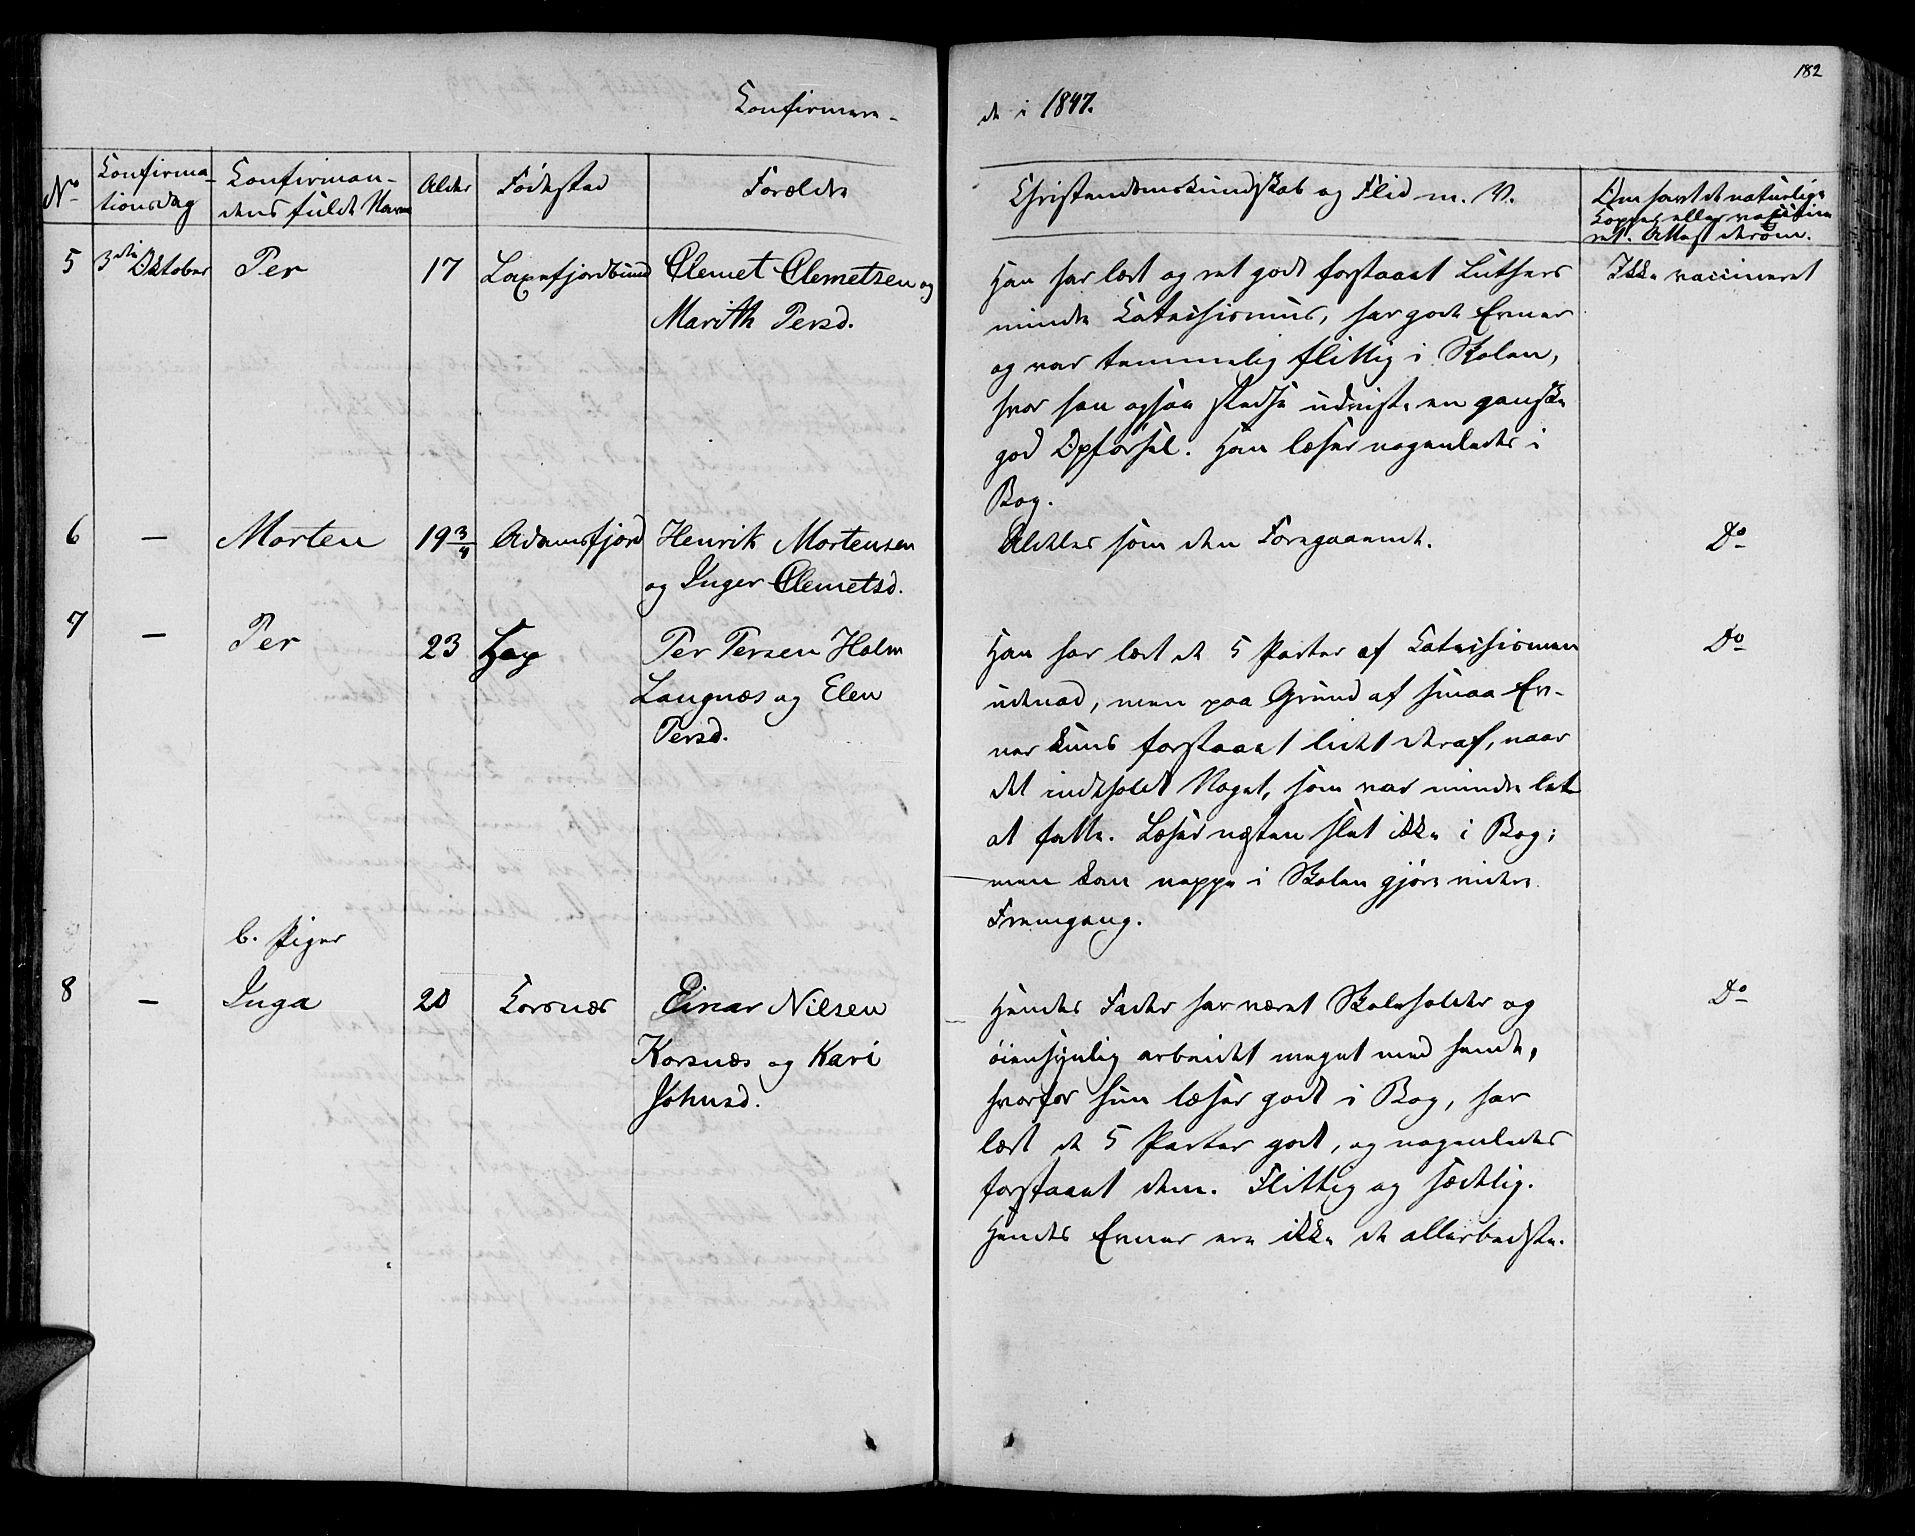 182
Confirmere-
de i 1847.
No
Confirma-
tionsdag
Confirman-
dens fulde Navn
Alder
Fødested
Forældre
Christendomskundskab og Flid m. V.
Om havt de naturlige
Kopper eller vaccine-
ret. Attest derom.
5 3die Oktober Per 17 Laxefjordbund Clemet Clemetsen og
Marith Persd.
Han har lært og ret godt forstaaet Luthers
mindre Catechismus, har gode Evner
og var temmelig flittig i Skolen,
hvor han ogsaa stedse udviste en ganske
god Opførsel. Han læser nogenledes i
Bog.
Ikke vaccineret
6 – Morten 19 3/4 Adamsfjord Henrik Mortensen
og Inger Clemetsd.
Aldeles som den Foregaaende.
Do
7 – Per 23 Hop Per Persen Holm
Langnæs og Elen
Persd.
Han har lært de 5 Parter af Catechismen
udenad, men paa Grund af smaa Ev-
ner kuns forstaaet lidet deraf, naar
det indeholdt Noget, som var mindre let
at fatte. Læser næsten slet ikke i Bog;
men kan neppe i Skolen gjøre videre
Fremgang.
Do
b. Piger
8 – Inga 20 Corsnæs Einar Nilsen
Korsnæs og Kari
Johnsd.
Hendes Fader har været Skoleholder og
øiensynlig arbeidet meget med hende,
hvorfor hun læser godt i Bog, har
lært de 5 Parter godt, og nogenledes
forstaaet dem. Flittig og sædelig.
Hendes Evner ere ikke de allerbedste.
Do